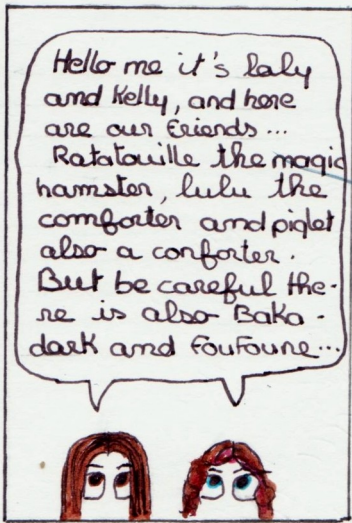 Hello me it's laly
and Kelly, and here
are our friends...
Ratatouille the magic
hamster, lulu the
comforter and piglet
also a conforter.
But be careful the-
re is also Baka-
dark and Foufoune...